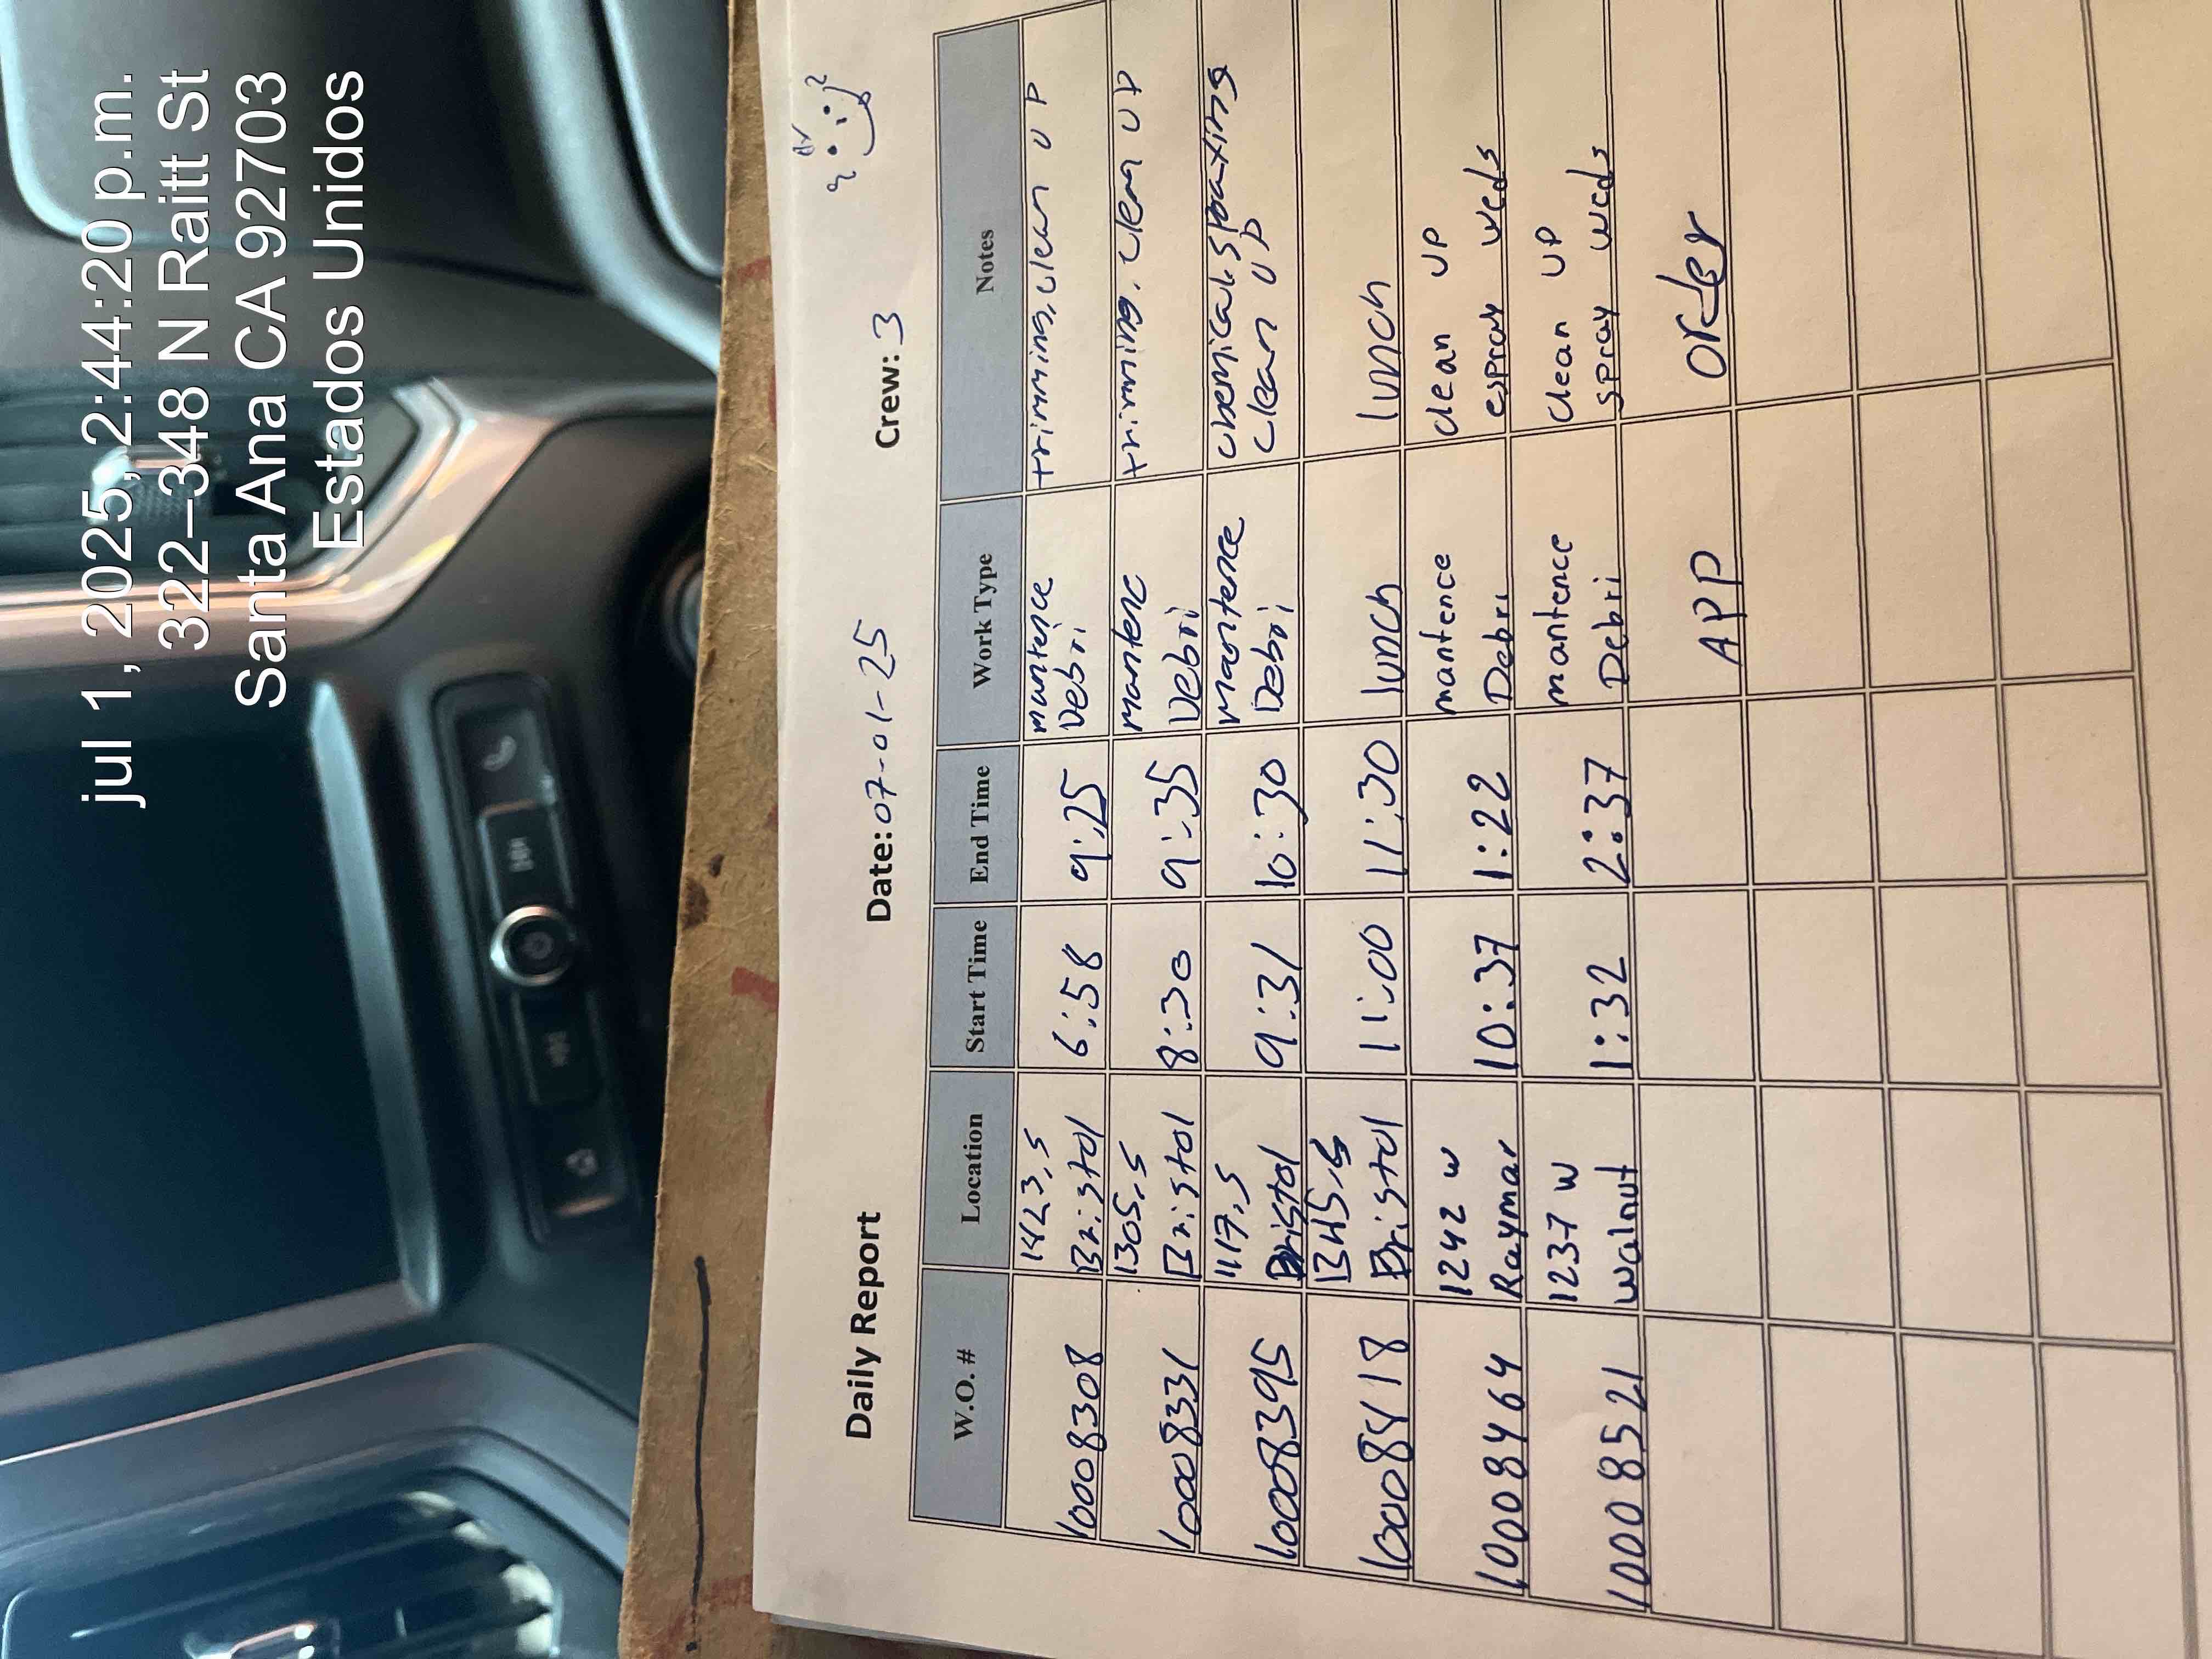 jul 1, 2025, 2:44:20 p.m.
322–348 N Raitt St
Santa Ana CA 92703
Estados Unidos
Daily Report Date: 07-01-25 Crew: 3
W.O. # Location Start Time End Time Work Type Notes
10008308 1423.S Bristol 6:58 9:25 Debri trimming, clean UP
10008331 1305.S Bristol 8:30 9:35 mantenc Debri trimming. clean UP
10008395 1117.S Bristol 9:31 10:30 mantence Debri chemical. clean UP
10008418 Bristol 11:00 11:30 lunch lunch
10008464 1242 W Raymar 10:37 1:22 mantence Debri clean UP espray weds
10008521 1237 W Walnut 1:32 2:37 mantence Debri clean UP spray weds
APP order